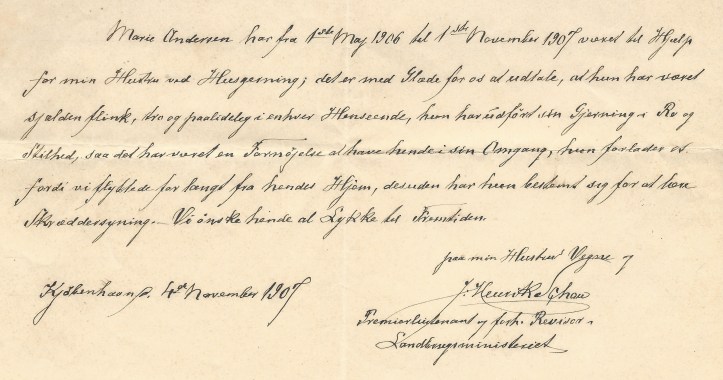 Marie Andersen har fra 1ste Maj 1906 til 1ste November 1907 været til Hjælp
for min Hustru ved Husgerning; det er med Glæde for os at udtale, at hun har været
sjælden flink, tro og paalidelig i enhver Henseende, hun har udført sin Gjerning i Ro og
Stilhed, saa det har været en Fornöjelse at have hende i sin Omgang, hun forlader os
fordi vi flyttede for langt fra hendes Hjem, desuden har hun bestemt sig for at lære
Skræddersyning. Vi önske hende al Lykke til Fremtiden.
paa min Hustrus Vegne og
Kjöbenhavn, 4de November 1907
J. Henrik Schou
Premierlieutenant og forh. Revisor i
Landbrugsministeriet